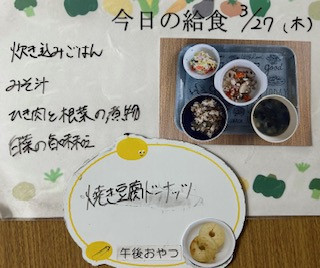 今日の給食 3/27(木)
炊き込みごはん
みそ汁
ひき肉と根菜の煮物
白菜の旨味和え
焼き豆腐ドーナッツ
午後おやつ